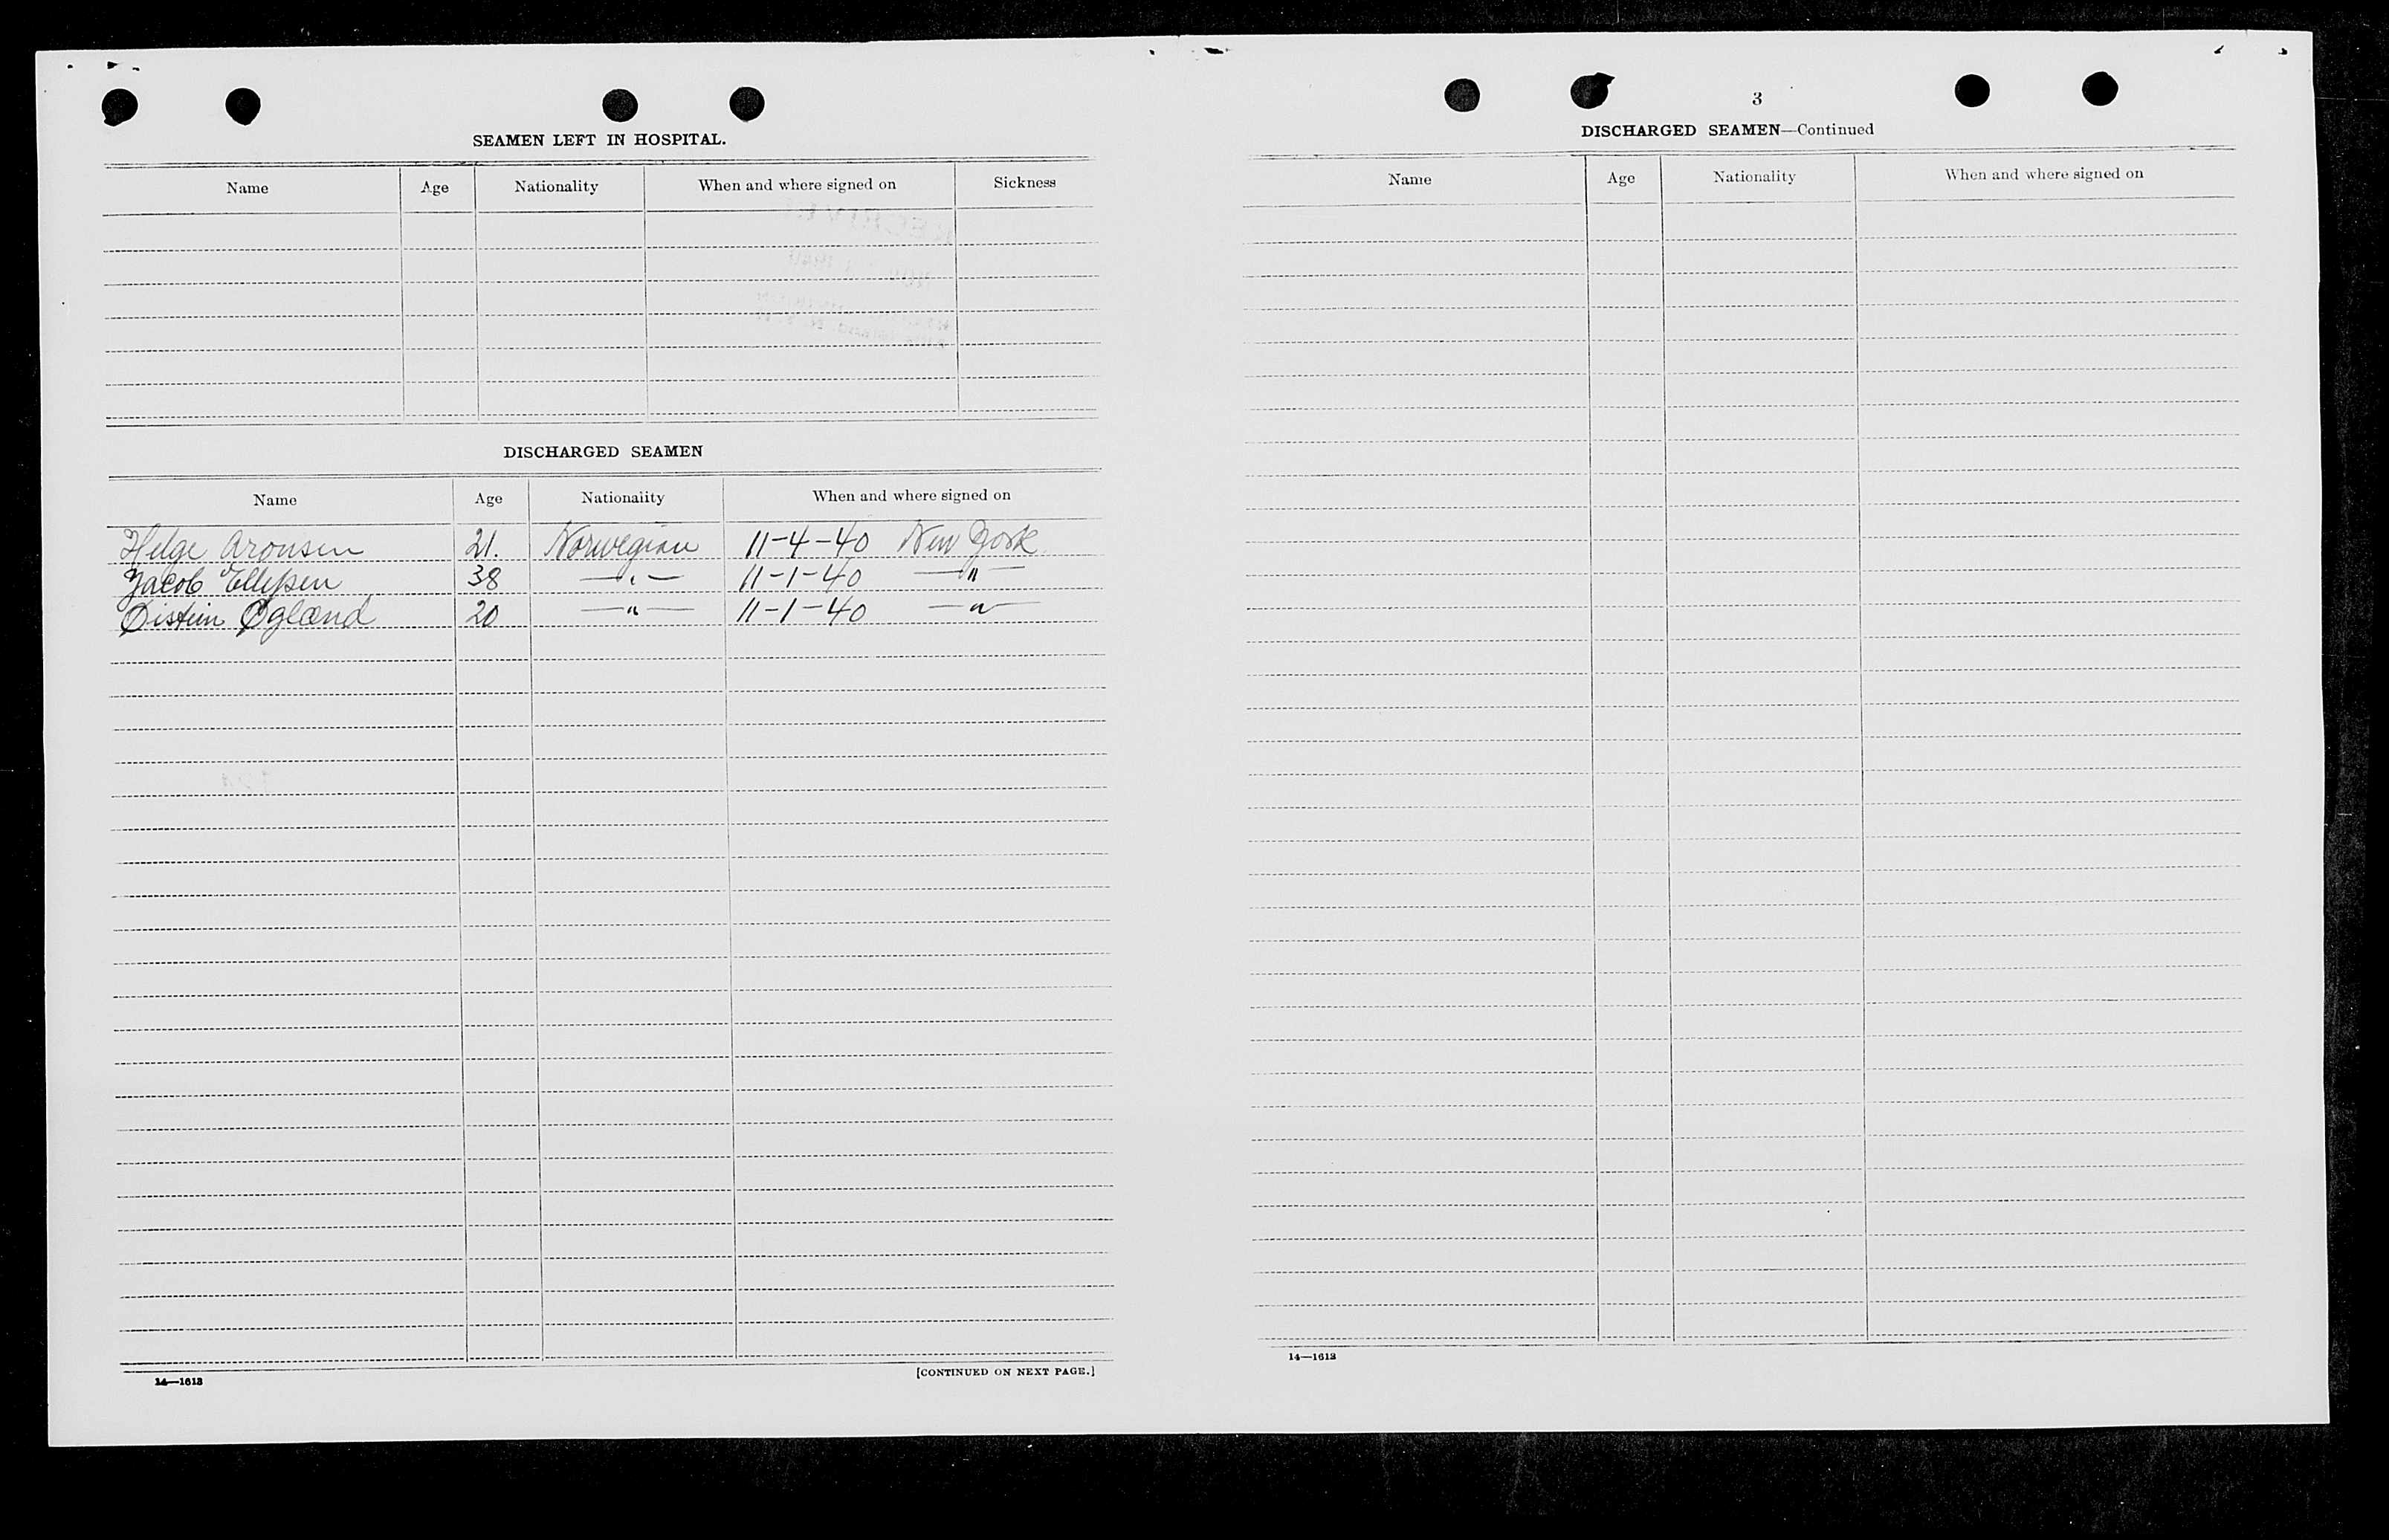 SEAMEN LEFT IN HOSPITAL.
Name Age Nationality When and where signed on Sickness
DISCHARGED SEAMEN
Name Age Nationality When and where signed on
Helge Aronsen 21. Norwegian 11-4-40 New York
Jacob Ellefsen 38 —"— 11-1-40 —"—
Øistein Øgland 20 —"— 11-1-40 —"—
14—1613
[CONTINUED ON NEXT PAGE.]
3
DISCHARGED SEAMEN—Continued
Name Age Nationality When and where signed on
14—1613